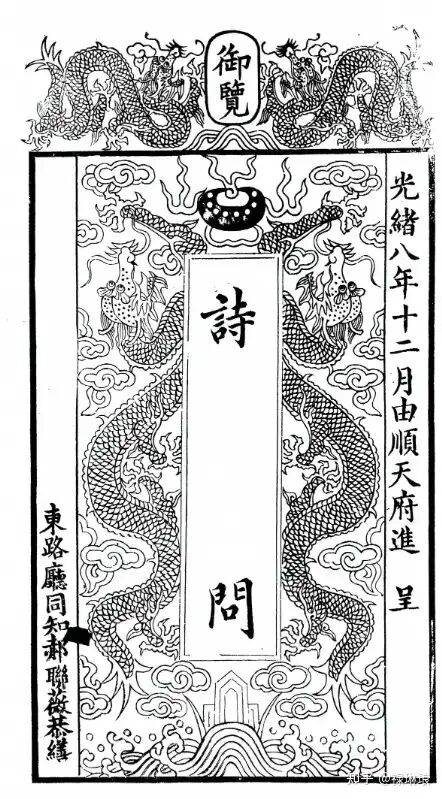 御覽
光緒八年十二月由順天府進 呈
詩 問
東路廳同知郝聯薇恭繕
知乎